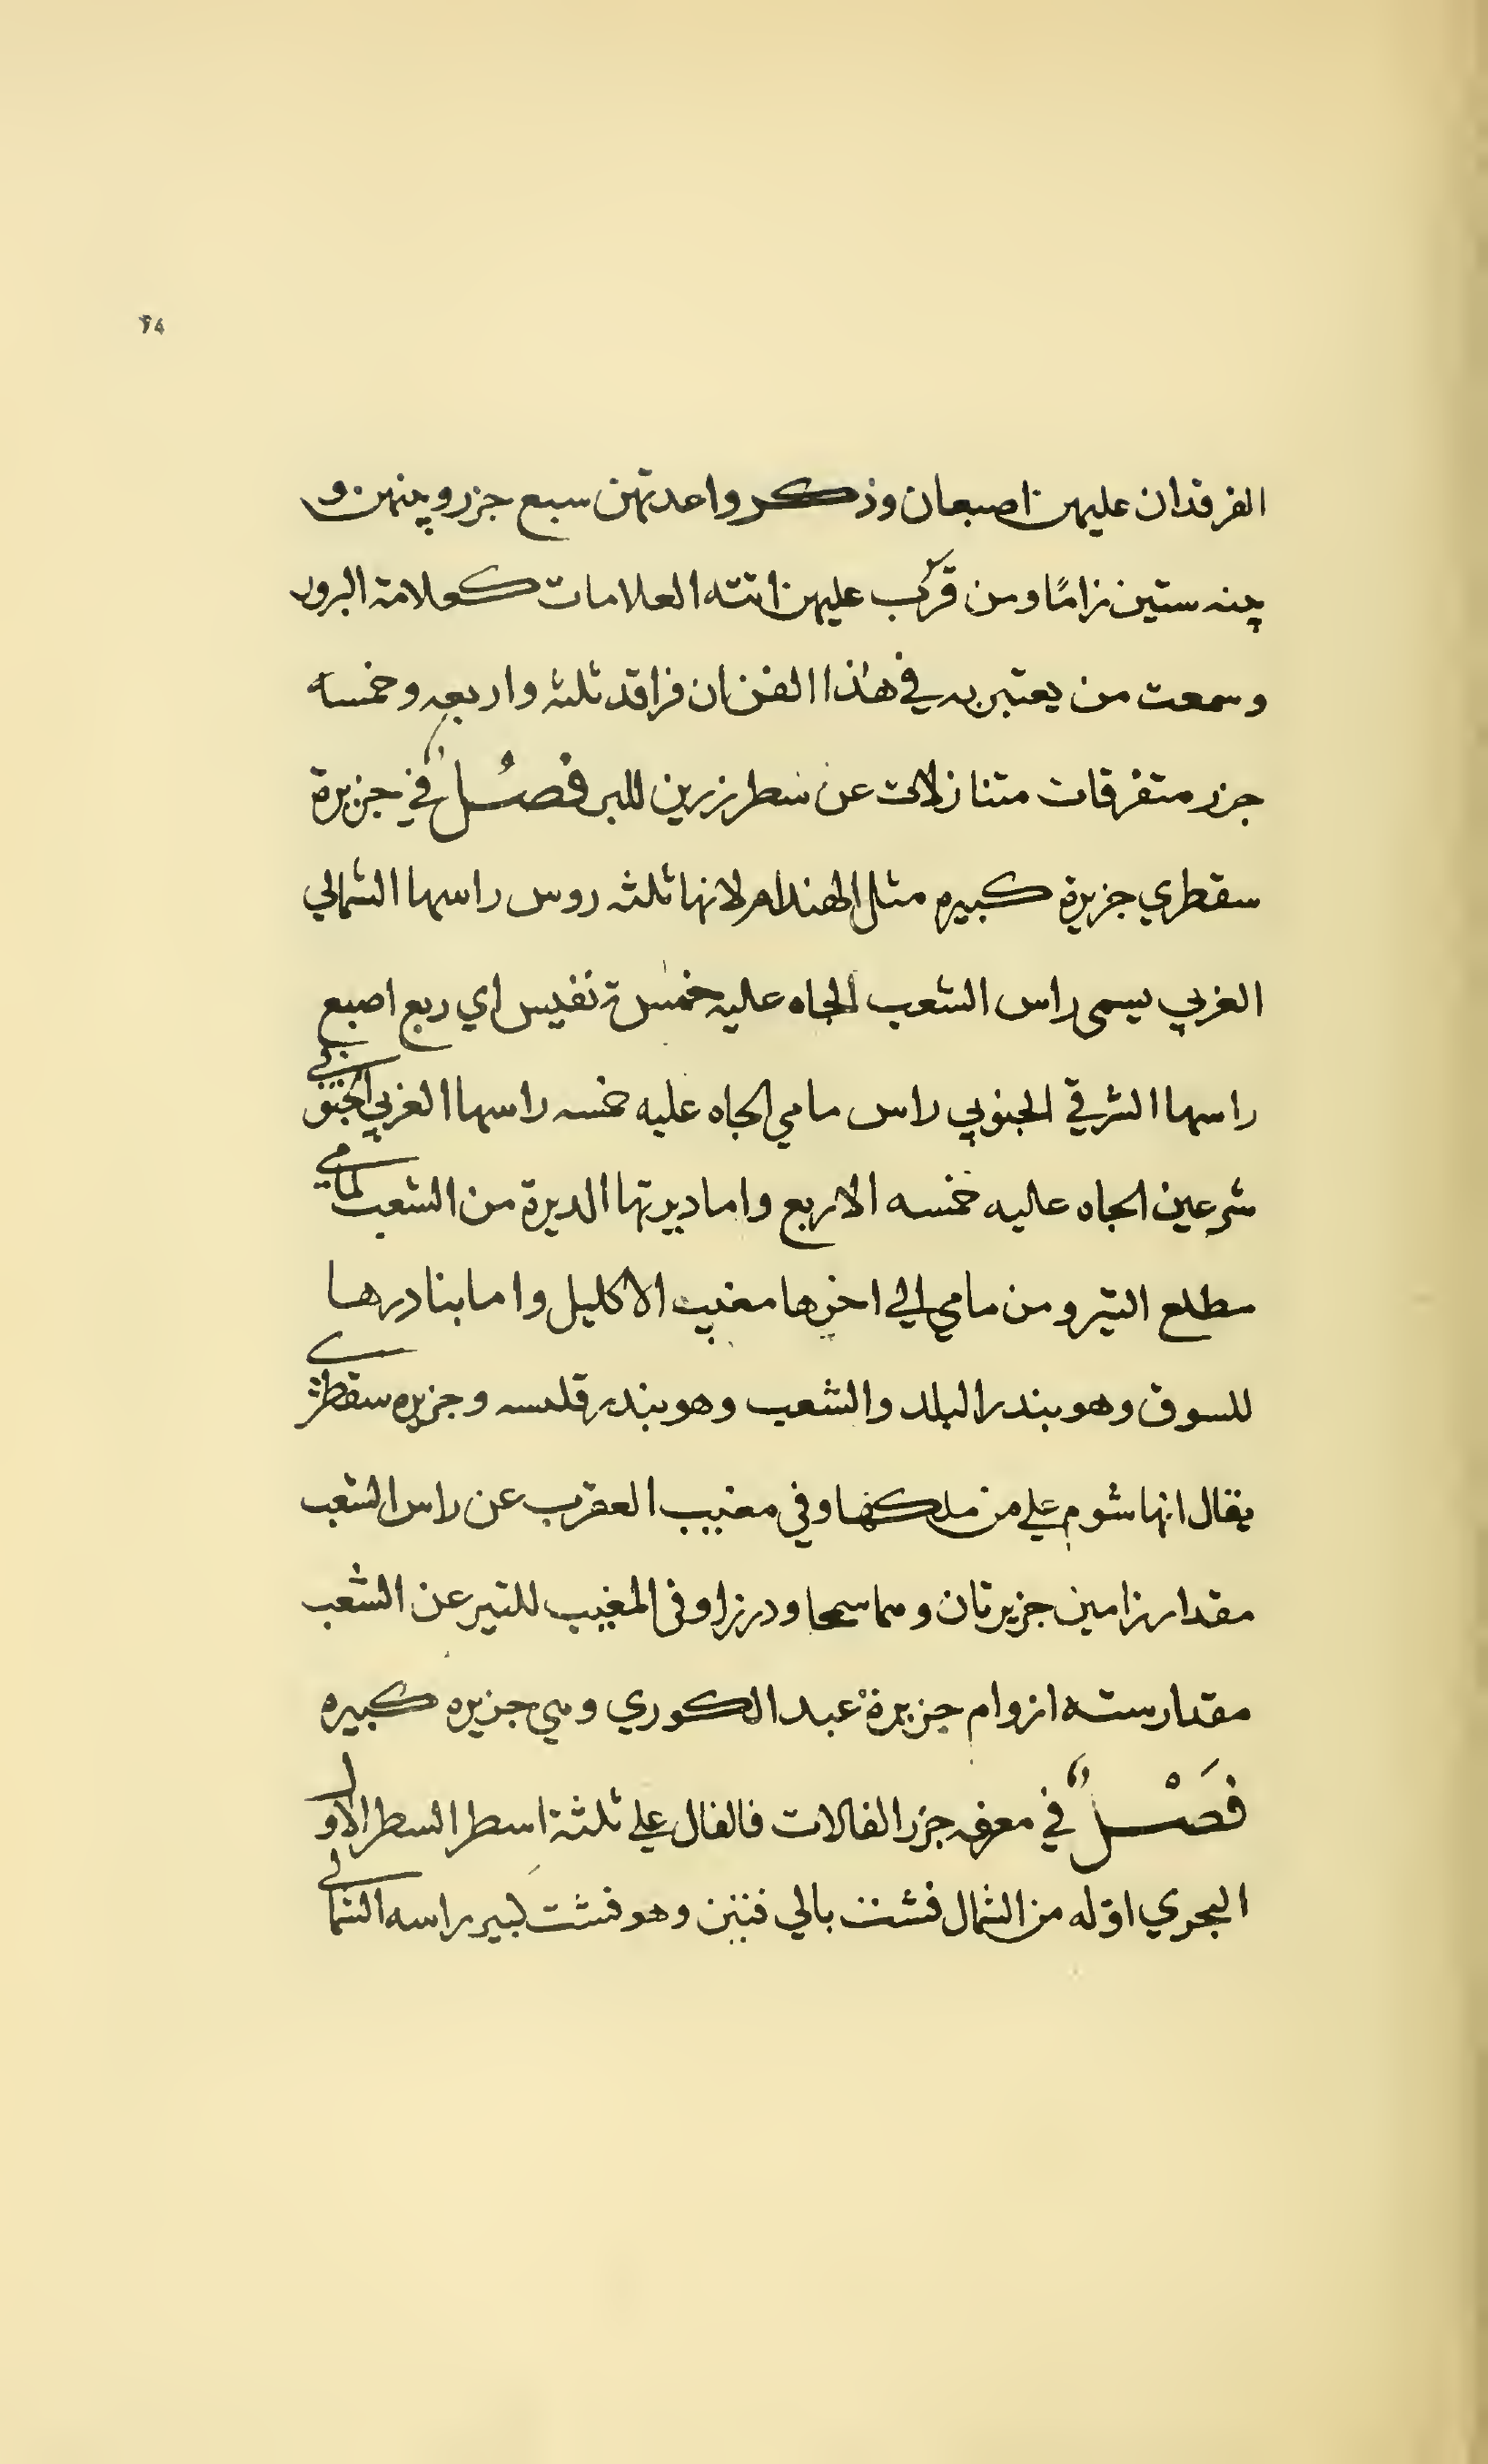 ٩٤
الفرقدان عليهن اصبعان وذكر واعدتهن سبع جزر وبينهن و
بينه ستين زامًا ومن قَرُب عليهن اتته العلامات كعلامة البرور
وسمعت من يعتبر به في هذا الفن ان فراقد ثلثه واربعه وخمسه
جزر متفرقات متنازلات عن سطر زرين للبر فصُل في جزيرة
سقطري جزيرة كبيره مثل الهندام لانها ثلثه روس راسها الشمالي
الغربي يسمى راس الشعب الجاه عليه خمسة نفيس اي ربع اصبع
راسها الشرقي الجنوبي راس مامي الجاه عليه خمسه راسها الغربي الجنوبي
شرعين الجاه عليه خمسه الا ربع واما ديرتها الديرة من الشعب لمامي
مطلع التير ومن مامي الي اخرها مغيب الاكليل واما بنادرها
للسوق وهو بندر البلد والشعب وهو بندر قلنسه وجزيره سقطري
يقال انها شوم علي من ملكها وفي مغيب العقرب عن راس الشعب
مقدار زامين جزيرتان وهما سمحا ودرزا وفي المغيب للتير عن الشعب
مقدار سته ازوام جزيرة عبد الكوري وهي جزيره كبيره
فَصْل في معرفه جزر الفالات فالفال علي ثلثة اسطر السطر الاول
البحري اوّله من الشمال فشت بالي فنين وهو فشت كبير راسه الشمالي